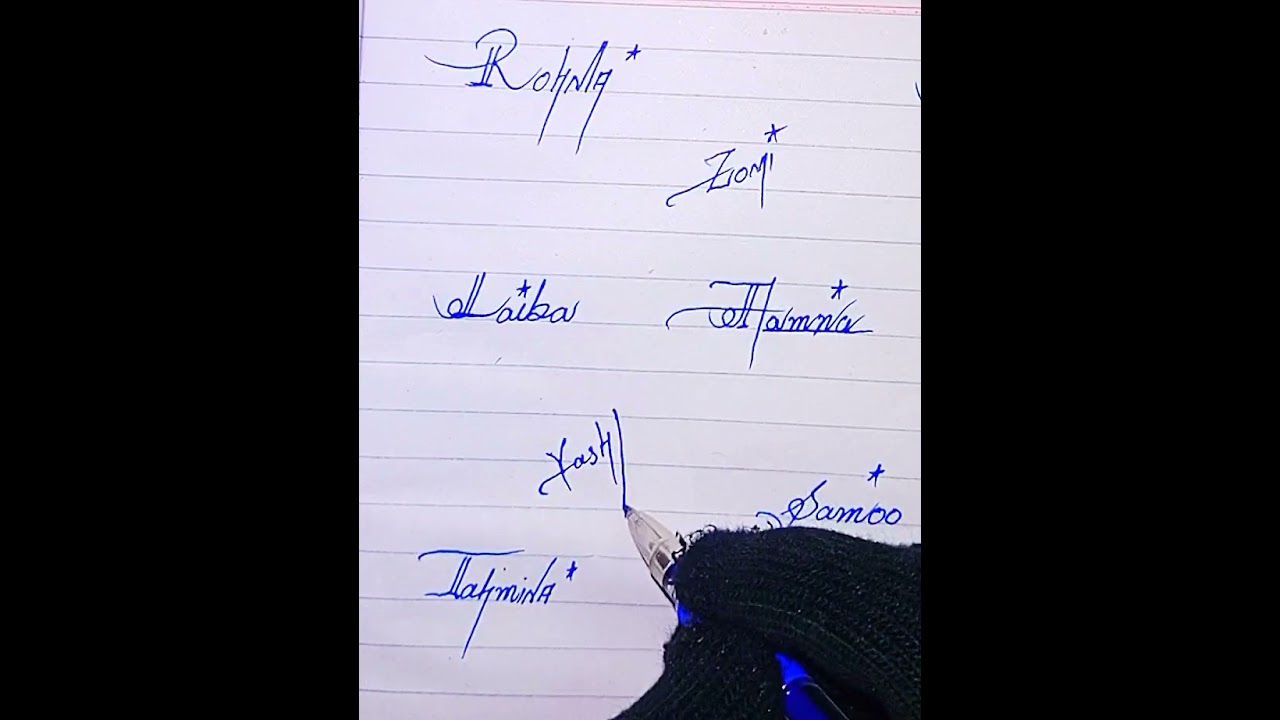 RoHNIA*
Zomi*
Laiba*
Hamna*
Yash
Samoo*
TaHMiNA*